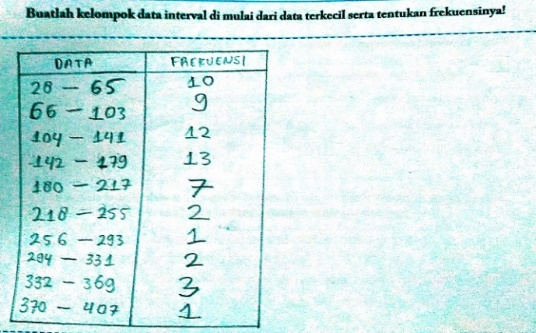 Buatlah kelompok data interval di mulai dari data terkecil serta tentukan frekuensinya!
DATA FREKUENSI
28 - 65 10
66 - 103 9
104 - 141 12
142 - 179 13
180 - 217 7
218 - 255 2
256 - 293 1
294 - 331 2
332 - 369 3
370 - 407 1